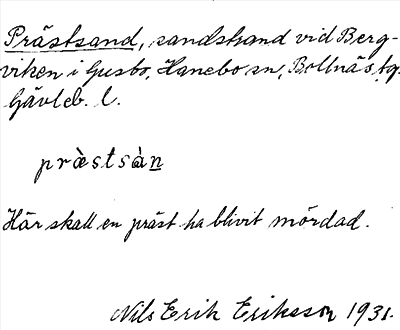 Prästsand, sandstrand vid Berg-
viken i Gusbo, Hanebo sn, Bollnäs tg.
Gävleb. l.
præ̀stsàn
Här skall en präst ha blivit mördad.
Nils Erik Eriksson 1931.